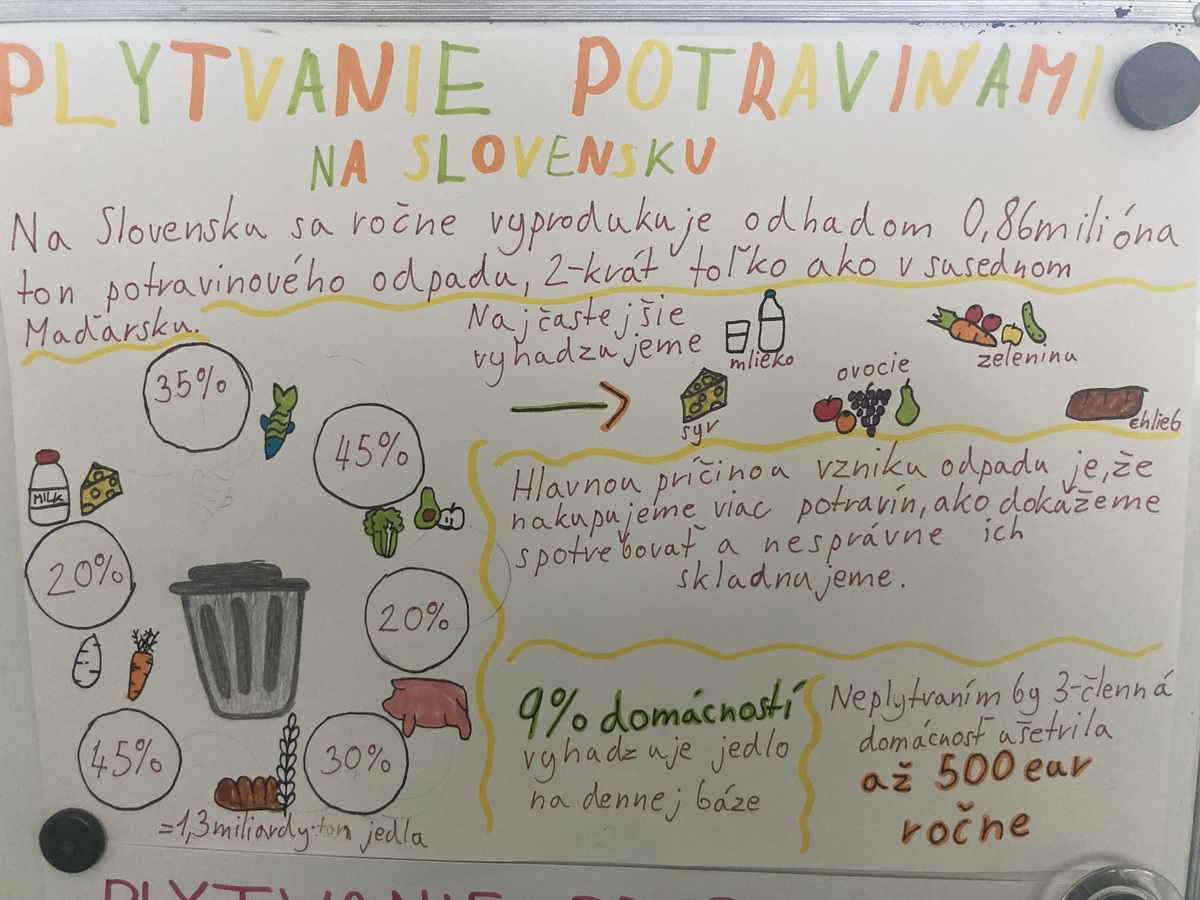 PLYTVANIE POTRAVINAMI
NA SLOVENSKU
Na Slovensku sa ročne vyprodukuje odhadom 0,86milióna
ton potravinového odpadu, 2-krát toľko ako v susednom
Maďarsku.
Najčastejšie
vyhadzujeme
mlieko
zeleninu
syr
ovocie
chlieb
35%
45%
MILK
20%
20%
45%
30%
=1,3miliardy ton jedla
Hlavnou príčinou vzniku odpadu je, že
nakupujeme viac potravín, ako dokážeme
spotrebovať a nesprávne ich
skladnujeme.
9% domácností
vyhadzuje jedlo
na dennej báze
Neplytvaním by 3-členná
domácnosť ušetrila
až 500 eur
ročne
PLYTVANIE